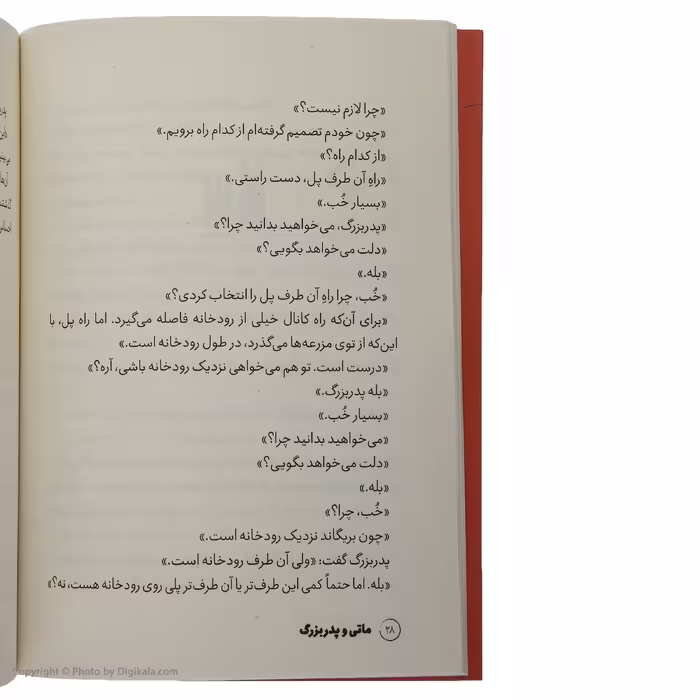 «چرا لازم نیست؟»
«چون خودم تصمیم گرفته‌ام از کدام راه برویم.»
«از کدام راه؟»
«راهِ آن طرف پل، دست راستی.»
«بسیار خُب.»
«پدربزرگ، می‌خواهید بدانید چرا؟»
«دلت می‌خواهد بگویی؟»
«بله.»
«خُب، چرا راهِ آن طرف پل را انتخاب کردی؟»
«برای آن‌که راه کانال خیلی از رودخانه فاصله می‌گیرد. اما راه پل، با
این‌که از توی مزرعه‌ها می‌گذرد، در طول رودخانه است.»
«درست است. تو هم می‌خواهی نزدیک رودخانه باشی، آره؟»
«بله پدربزرگ.»
«بسیار خُب.»
«می‌خواهید بدانید چرا؟»
«دلت می‌خواهد بگویی؟»
«بله.»
«خُب، چرا؟»
«چون بریگاند نزدیک رودخانه است.»
پدربزرگ گفت: «ولی آن طرف رودخانه است.»
«بله. اما حتماً کمی این طرف‌تر یا آن طرف‌تر پلی روی رودخانه هست، نه؟»
۲۸ ماتی و پدربزرگ
Copyright © Photo by Digikala.com